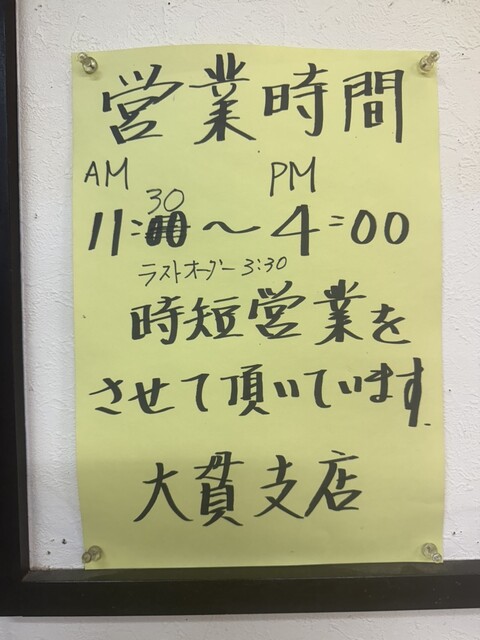 営業時間
AM PM
11:30～4:00
ラストオーダー 3:30
時短営業を
させて頂いています.
大貫支店